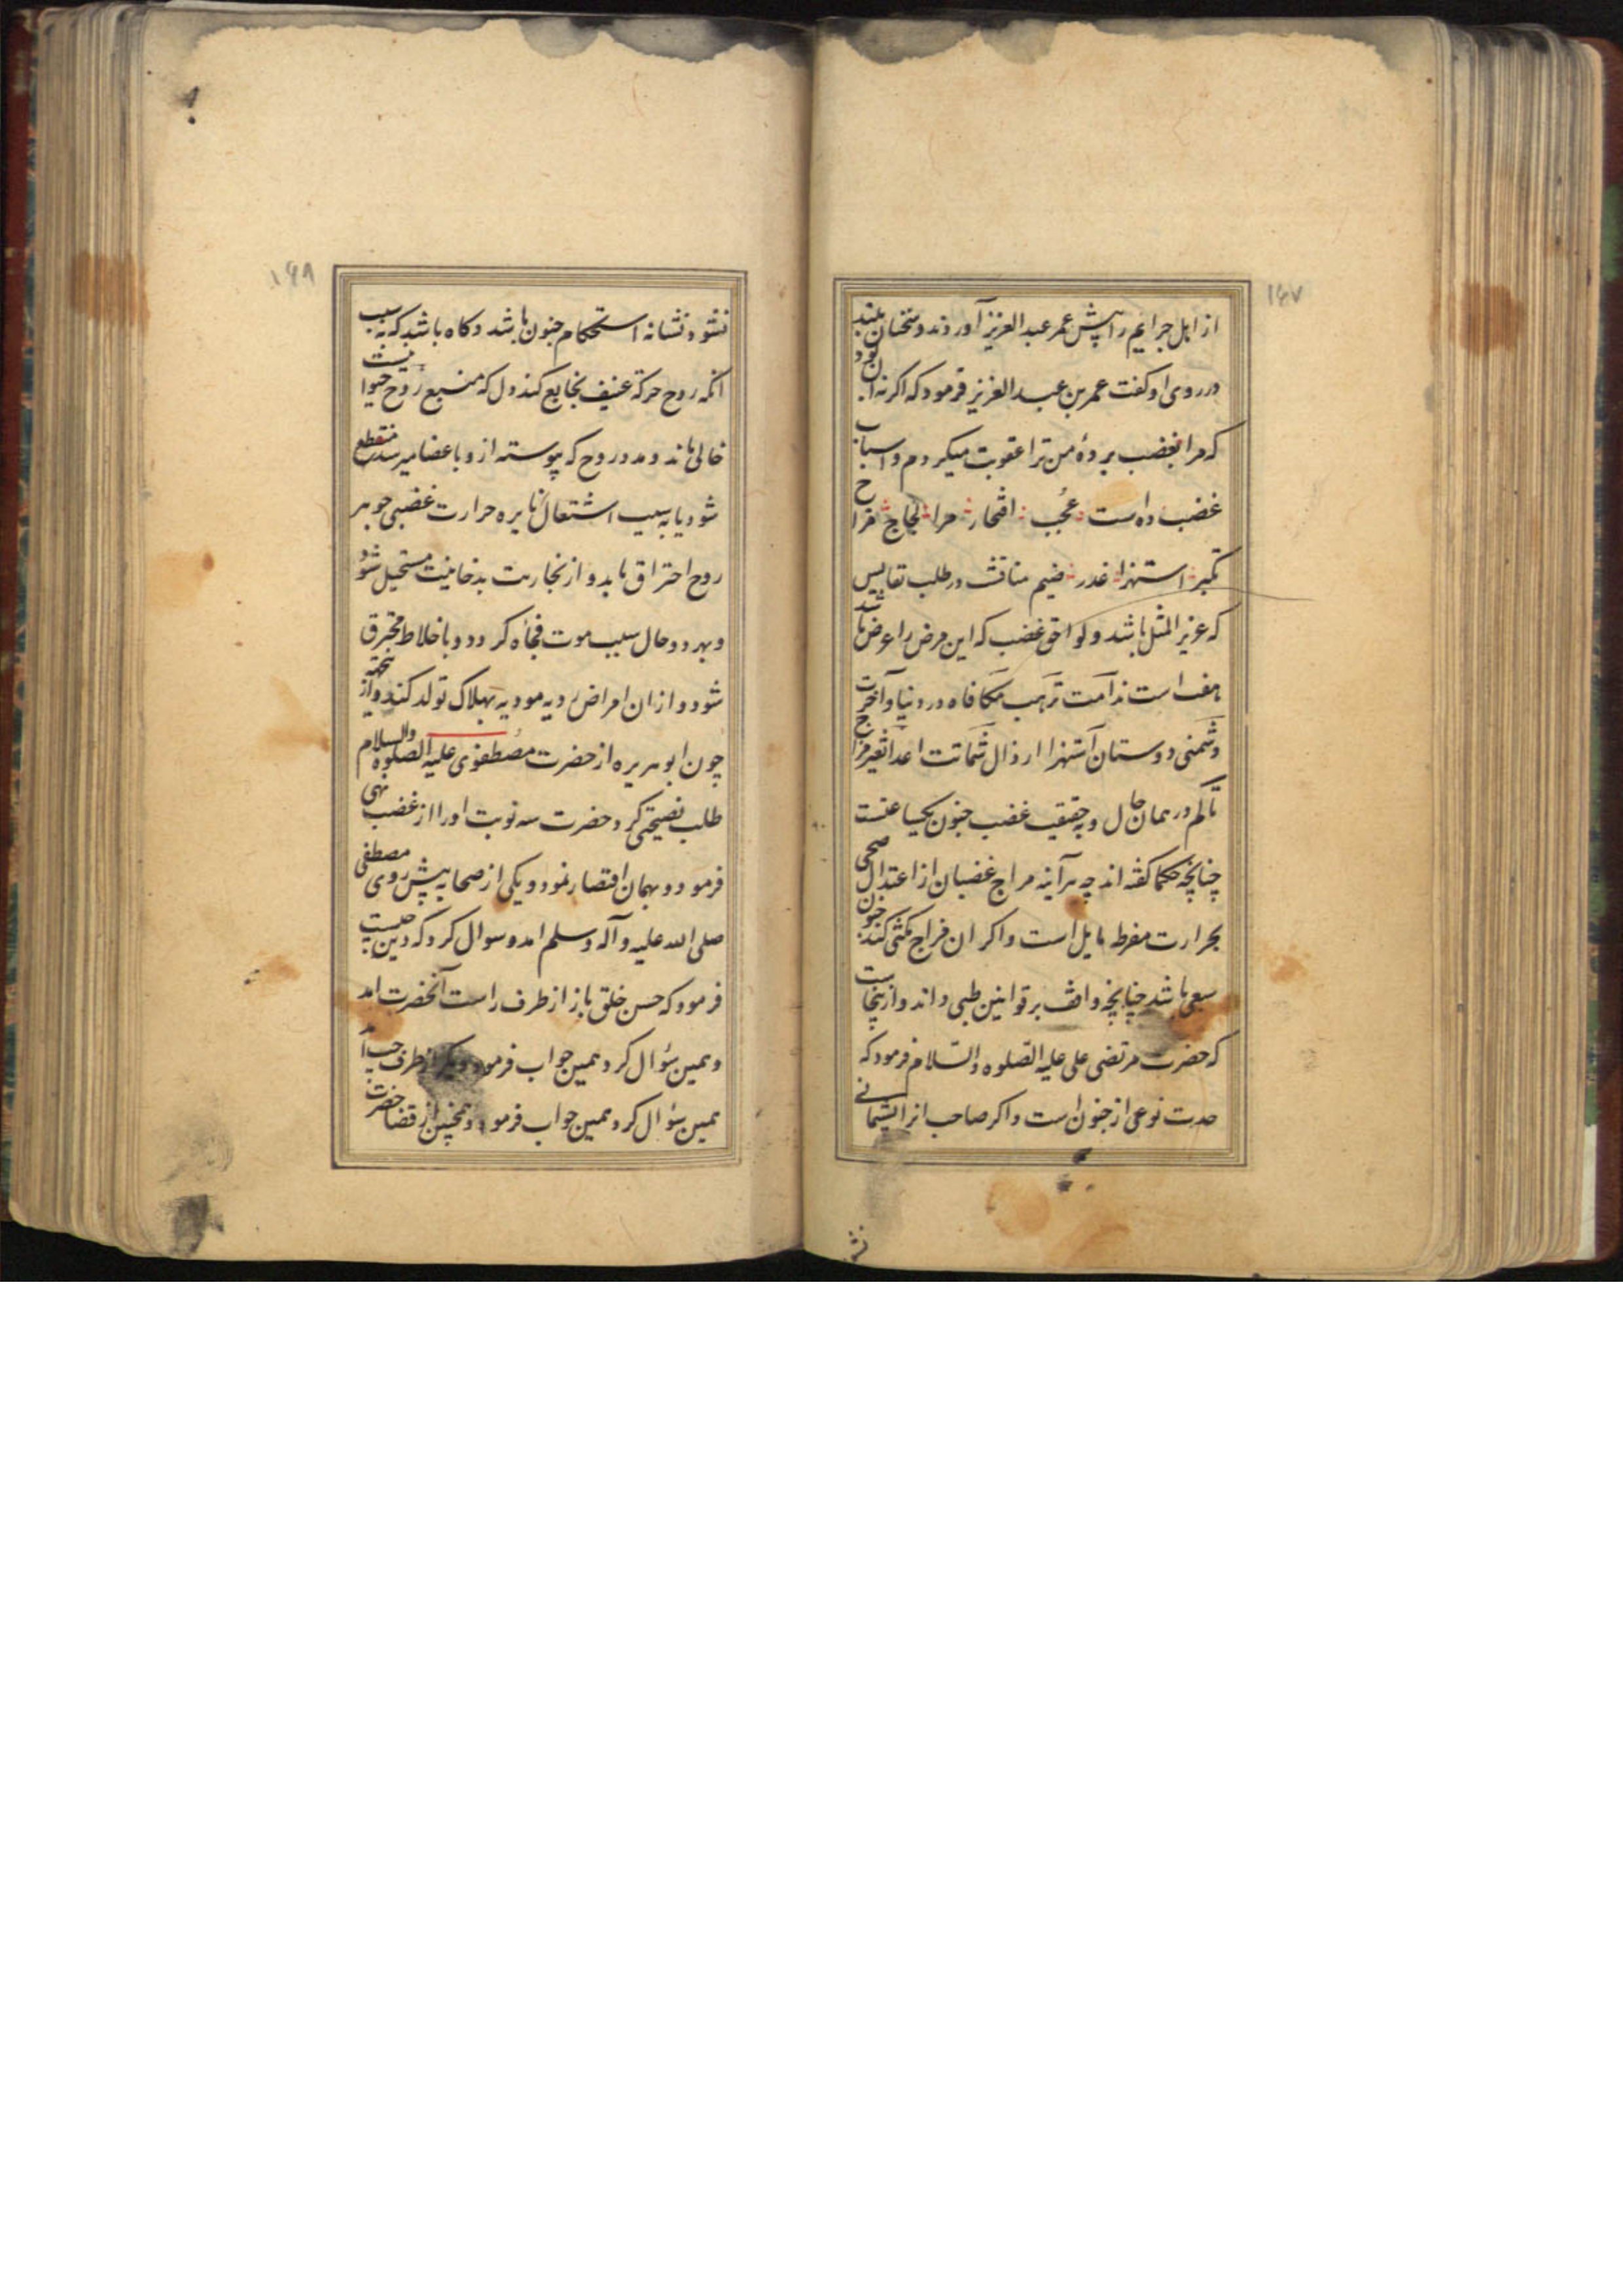 ۱۶۷
از اهل جرایم را پیش عمر عبد العزیز آوردند و سخنان بلند
در روی او گفت عمر بن عبد العزیز فرمود که اگر نه آن بود
که مرا بغضب بردهٔ من ترا عقوبت میکردم و اسباب
غضب ده است عُجب افتخار مرا لجاج مزاح
تکبر استهزا غدر ضیم مناقشت در طلب نفایس
که عزیز المثل باشد و لواحق غضب که این مرض را عرض باشد
هفت است ندامت ترهب مکافاه در دنیا و آخرت
دشمنی دوستان استهزا ارذال شماتت اعدا تغیر مزاج
تألم در همان حال و به حقیقت غضب جنون یکساعتست
چنانچه حکما گفته اند چه هر آینه مزاج غضبان از اعتدال صحی
بحرارت مفرطه مایل است و اگر ان مزاج مکثی کند جنون
سبعی باشد چنانچه واقف بر قوانین طبی داند و ازینجاست
که حضرت مرتضی علی علیه الصلوه والسلام فرمود که
حدت نوعی از جنون است و اگر صاحب انرا پشیمانی
نشو
۱۶۸
نشود نشانه استحکام جنون باشد و کاه باشد که به سبب
انکه روح حرکة عنیف بخارج کند دل که منبع روح حیوانیست
خالی ماند و مدد روح که پیوسته ازو باعضا میرسد منقطع
شود یا به سبب اشتعال نایره حرارت غضبی جوهر
روح احتراق یابد و از بخاریت بدخانیت مستحیل شود
و بهر دو حال سبب موت فجأه کردد و یا خلاط محترق
شود و از ان امراض ردیه مودیه بهلاک تولد کند و از ینجهته
چون ابو هریره از حضرت مصطفوی علیه الصلوه والسلام
طلب نصیحتی کرد حضرت سه نوبت او را از غضب نهی
فرمود و بهمان اقتصار نمود و یکی از صحابه پیش روی مصطفی
صلی الله علیه و آله و سلم امد و سوال کرد که دین چیست
فرمود که حسن خلق باز از طرف راست آنحضرت امد
و همین سؤال کرد همین جواب فرمود و دیگر از طرف چپ آمد
همین سؤال کرد همین جواب فرمود و همچنین از قفا حضرت